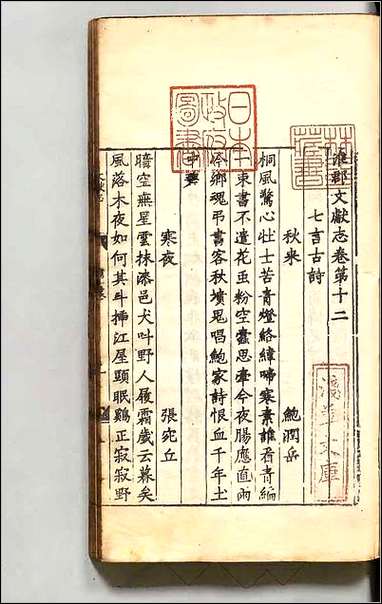 日本政府圖書
林氏藏書
淺草文庫
淮郡文獻志卷第十二
七言古詩
秋来 鮑潤岳
桐風驚心壯士苦青燈絡緯啼寒素誰看青編
一束書不遣花虫粉空蠹思牽今夜腸應直雨
冷鄉魂弔書客秋墳鬼唱鮑家詩恨血千年土
中碧
寒夜 張宛丘
暗空無星雲抹漆邑犬叫野人履霜歲云暮矣
風落木夜如何其斗插江屋頭眠雞正寂寂野